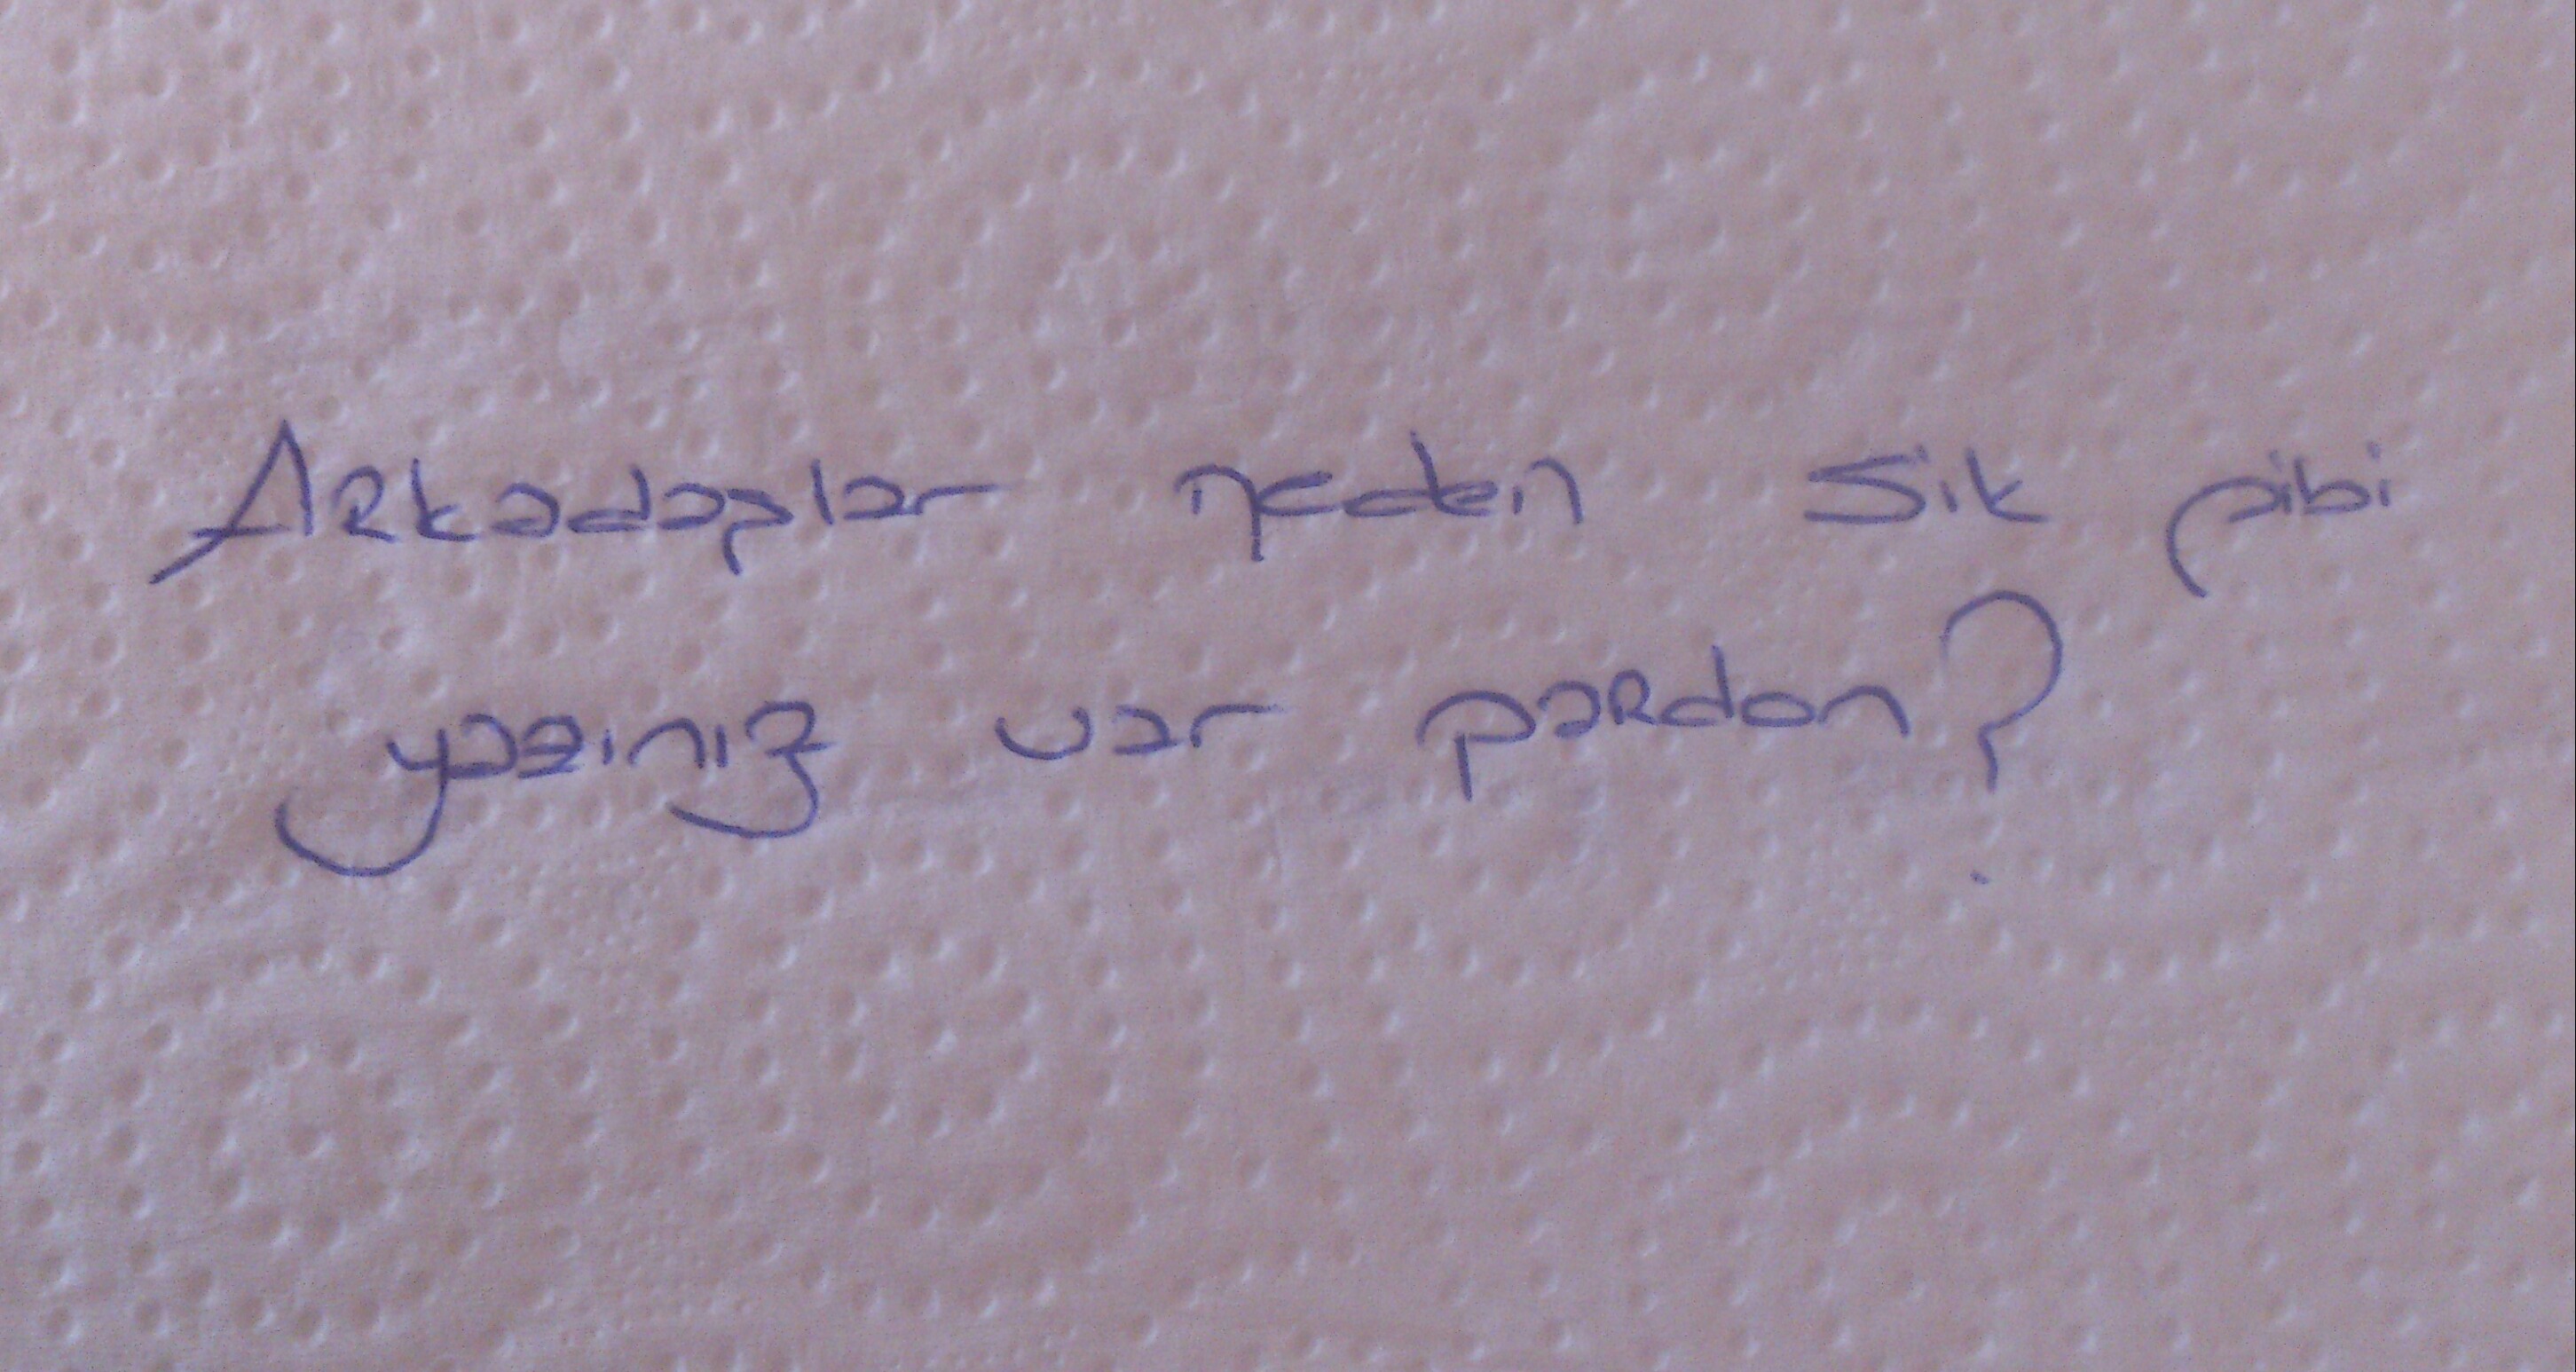 Arkadaşlar neden sik gibi
yazınız var pardon?